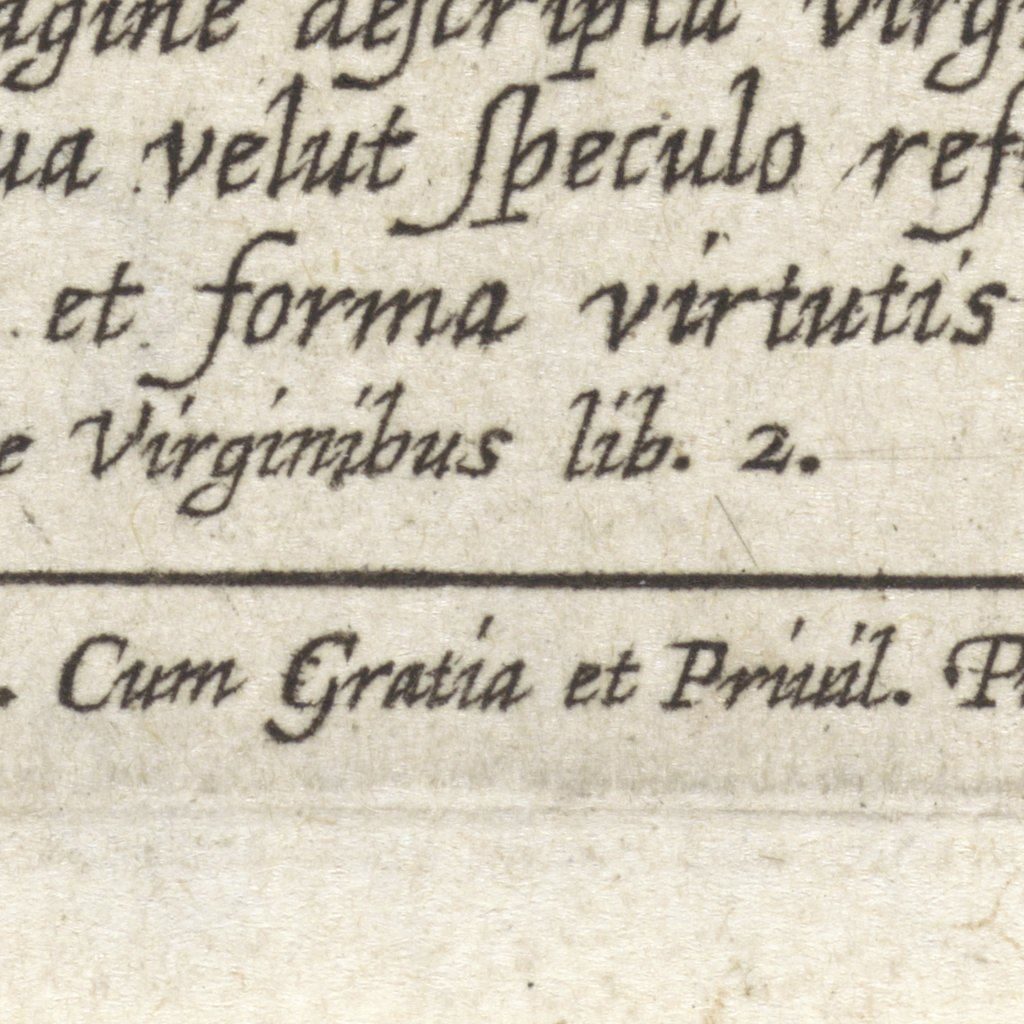 agine descripta virg
ua velut speculo ref
et forma virtutis
e Virginibus lib. 2.
. Cum Gratia et Priuil. P